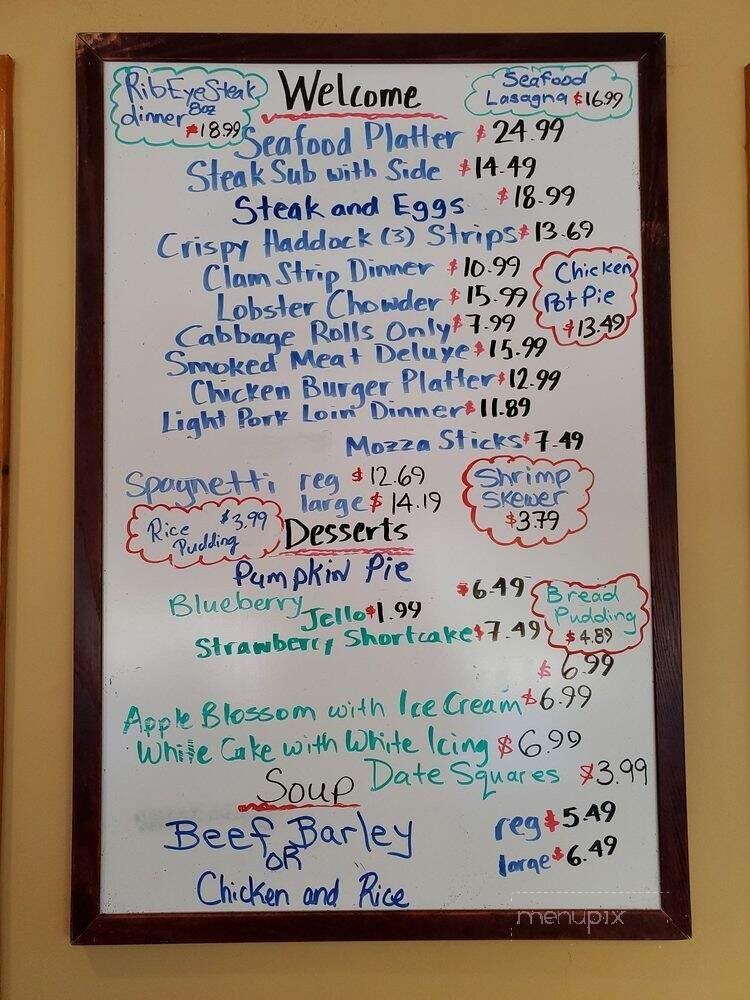 RibEyeSteak
8oz
dinner
$18.99
Welcome
Seafood
Lasagna $16.99
Seafood Platter $24.99
Steak Sub with Side $14.49
Steak and Eggs $18.99
Crispy Haddock (3) Strips $13.69
Clam Strip Dinner $10.99
Chicken
Pot Pie
$13.49
Lobster Chowder $15.99
Cabbage Rolls Only $7.99
Smoked Meat Deluxe $15.99
Chicken Burger Platter $12.99
Light Pork Loin Dinner $11.89
Mozza Sticks $7.49
Spagnetti reg $12.69
large $14.19
Shrimp
Skewer
$3.79
Rice $3.99
Pudding
Desserts
Pumpkin Pie
$6.49
Blueberry Jello $1.99
Bread
Pudding
$4.89
Strawberry Shortcake $7.49
$6.99
Apple Blossom with Ice Cream $6.99
White Cake with White Icing $6.99
Date Squares $3.99
Soup
Beef Barley reg $5.49
OR large $6.49
Chicken and Rice
menupix